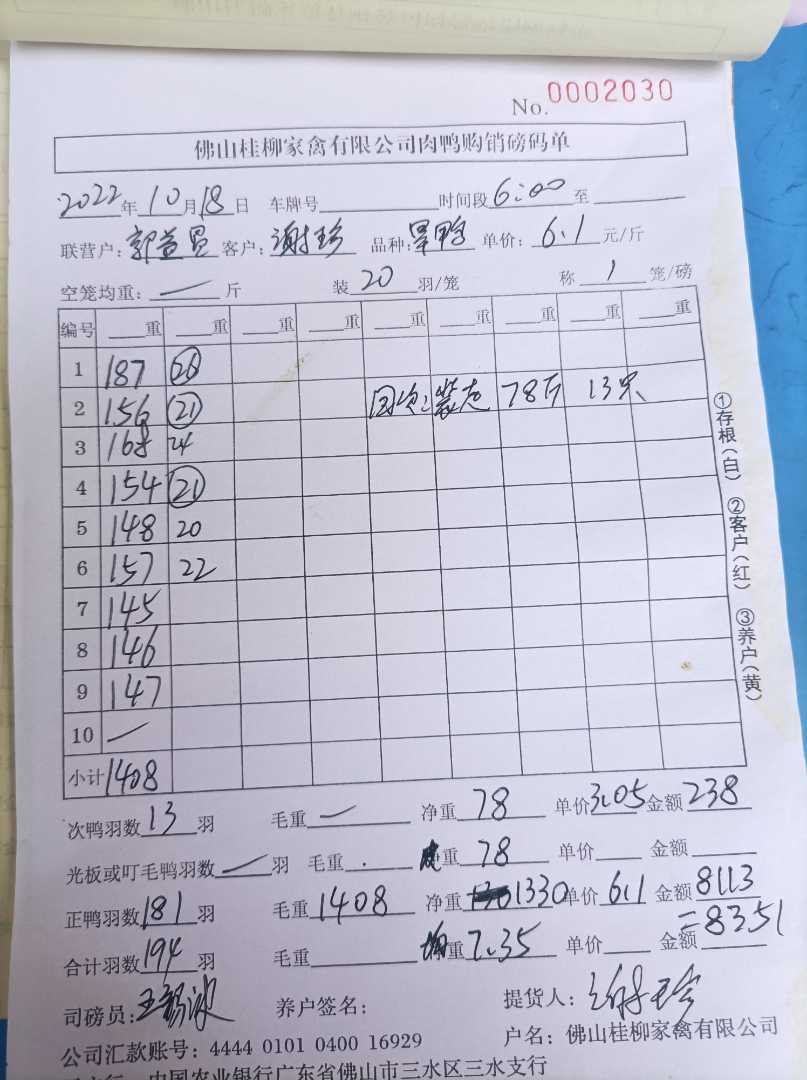 No. 0002030
佛山桂柳家禽有限公司肉鸭购销磅码单
2022年10月18日 车牌号 时间段6:00至
联营户: 郭益 客户: 谢珍 品种: 鸭 单价: 6.1元/斤
空笼均重: — 斤 装 20 羽/笼 称 1 笼/磅
编号 重 重 重 重 重 重 重 重 重
1 187
2 156 21 装走 78斤 13只
3 168 24
4 154 21
5 148 20
6 157 22
7 145
8 146
9 147
10 —
小计 1408
①存根(白) ②客户(红) ③养户(黄)
次鸭羽数13羽 毛重 — 净重 78 单价3.05 金额238
光板或叮毛鸭羽数 — 羽 毛重 . 重 78 单价 金额
正鸭羽数181羽 毛重1408 净重1330 单价6.1 金额8113
合计羽数194羽 毛重 均重7.35 单价 金额=8351
司磅员: 王 养户签名: 提货人: 谢珍
公司汇款账号: 4444 0101 0400 16929 户名: 佛山桂柳家禽有限公司
中国农业银行广东省佛山市三水区三水支行